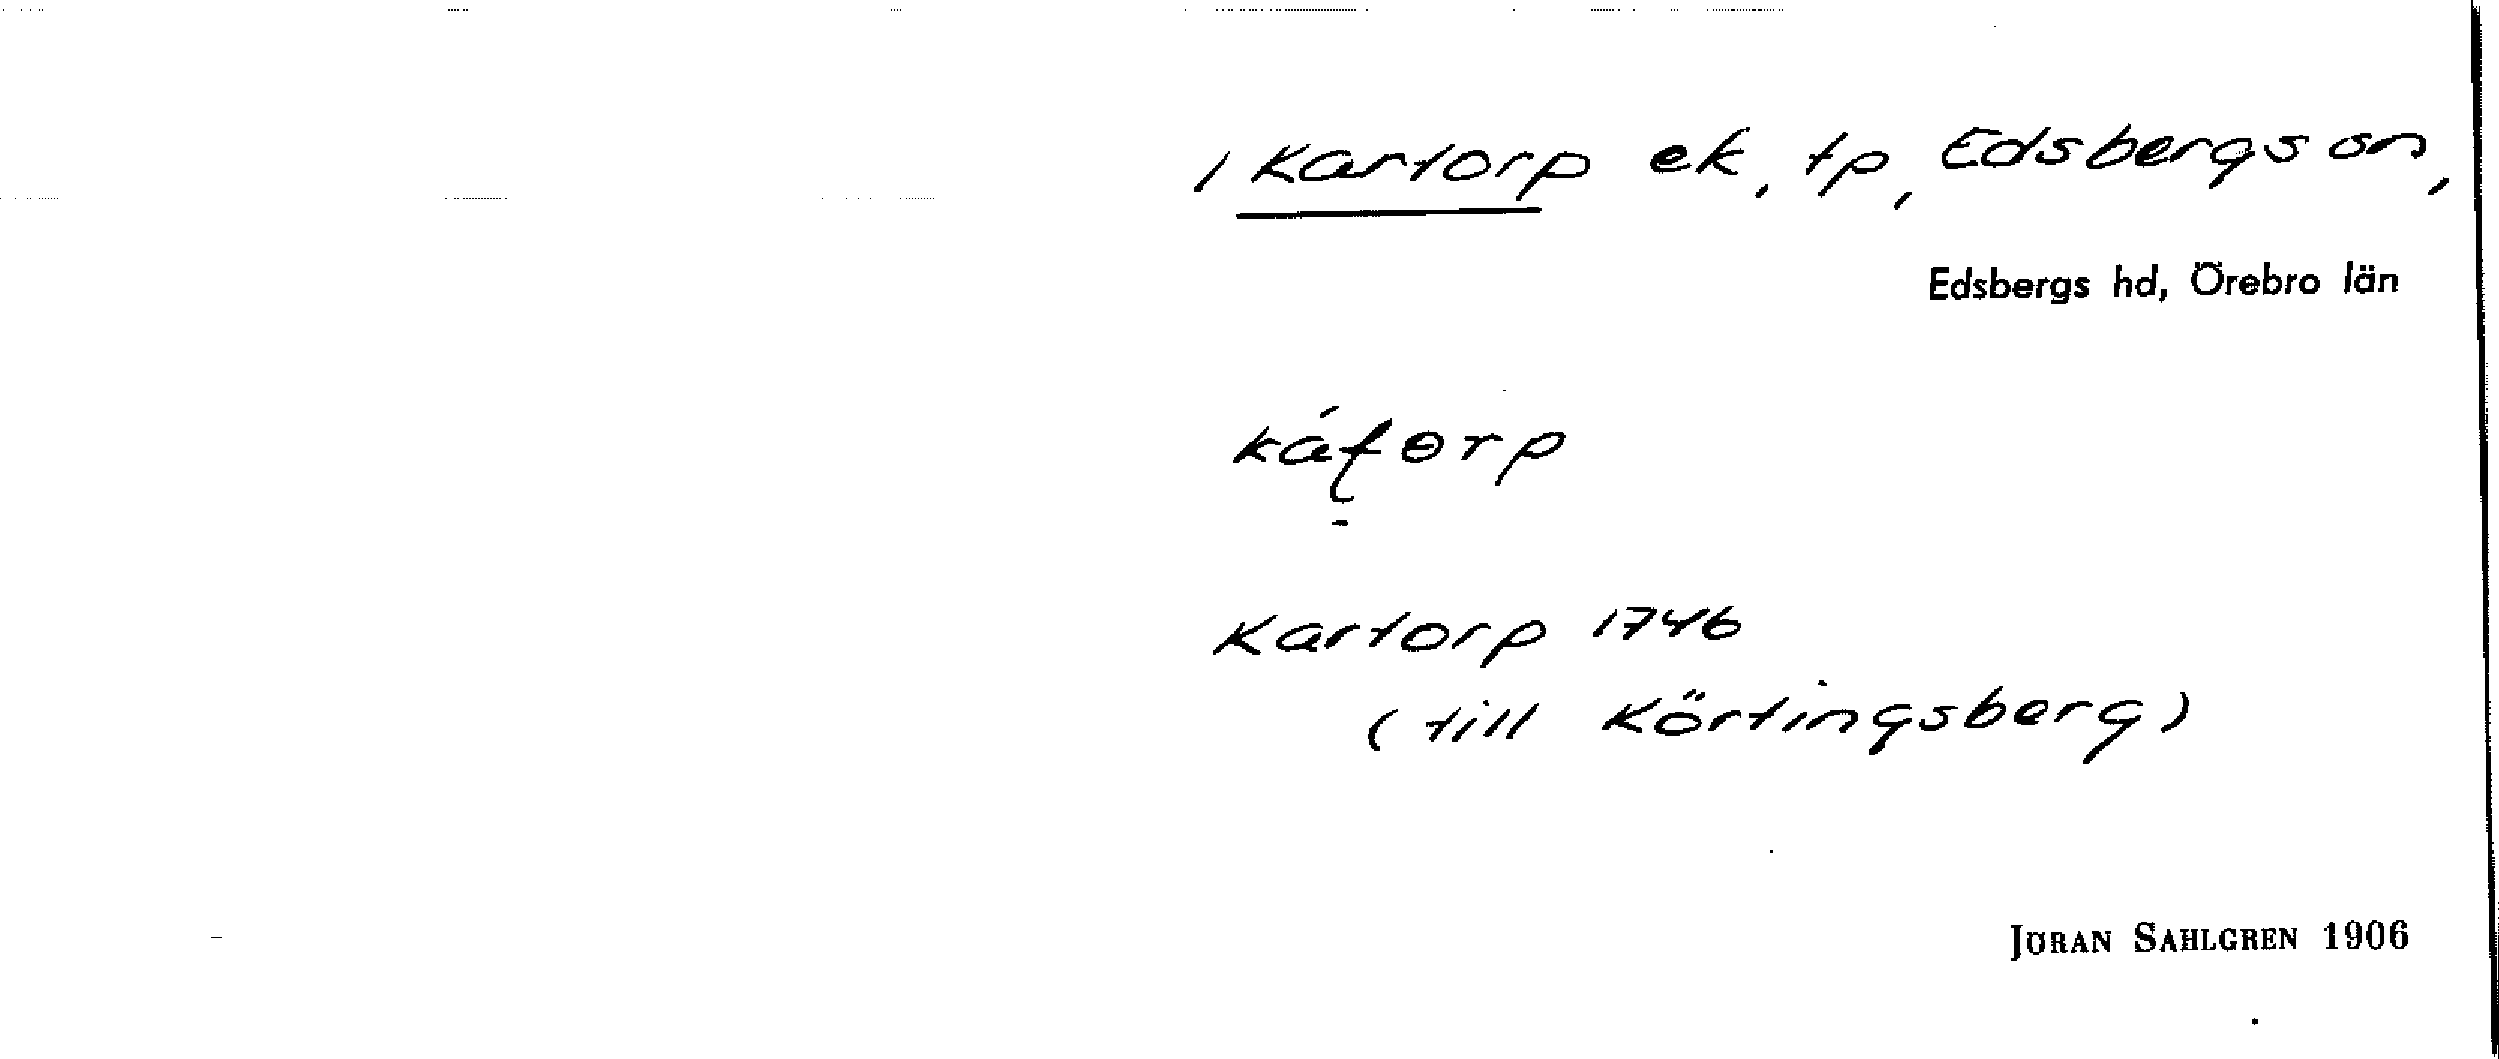 / Kartorp ek, tp, Edsbergs sn,
Edsbergs hd, Örebro län
Kartorp 1746
(till Körtingsberg)
JÖRAN SAHLGREN 1906